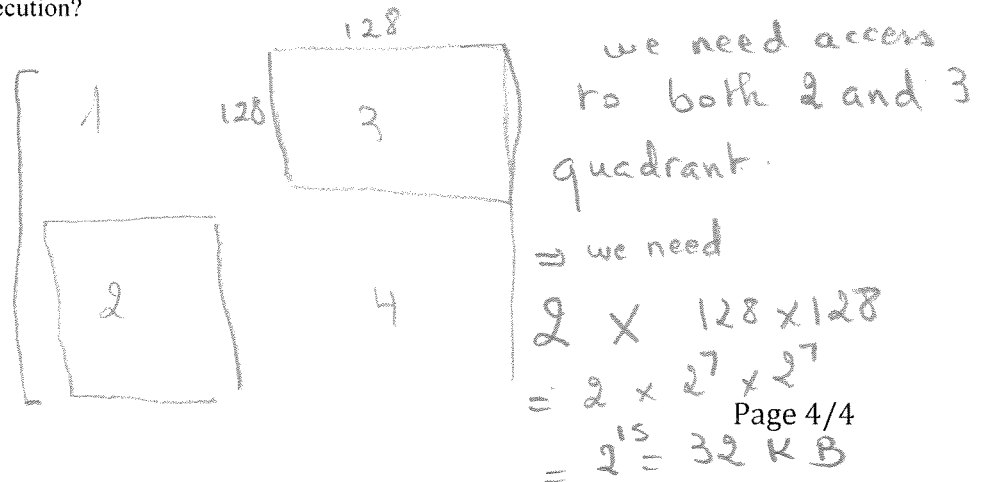 ecution?
128
1
128
3
2
4
we need access
to both 2 and 3
quadrant.
⇒ we need
2 × 128 × 128
= 2 × 2^7 × 2^7
Page 4/4
= 2^15 = 32 KB